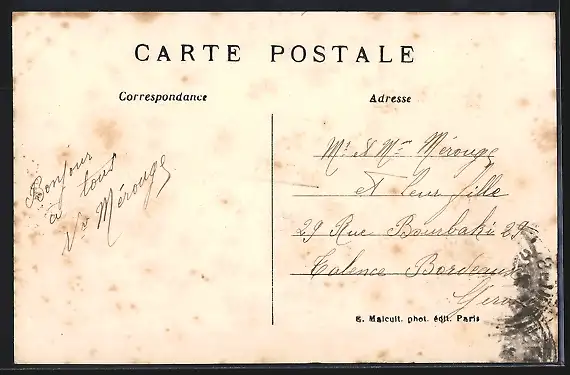 CARTE POSTALE
Correspondance
Adresse
Bonjour
à tous
Ve Mérouge
Mr & Mme Mérouge
Et leur fille
29 Rue Bourbaki 29
Talence Bordeaux
E. Malcuit. phot. édit. Paris